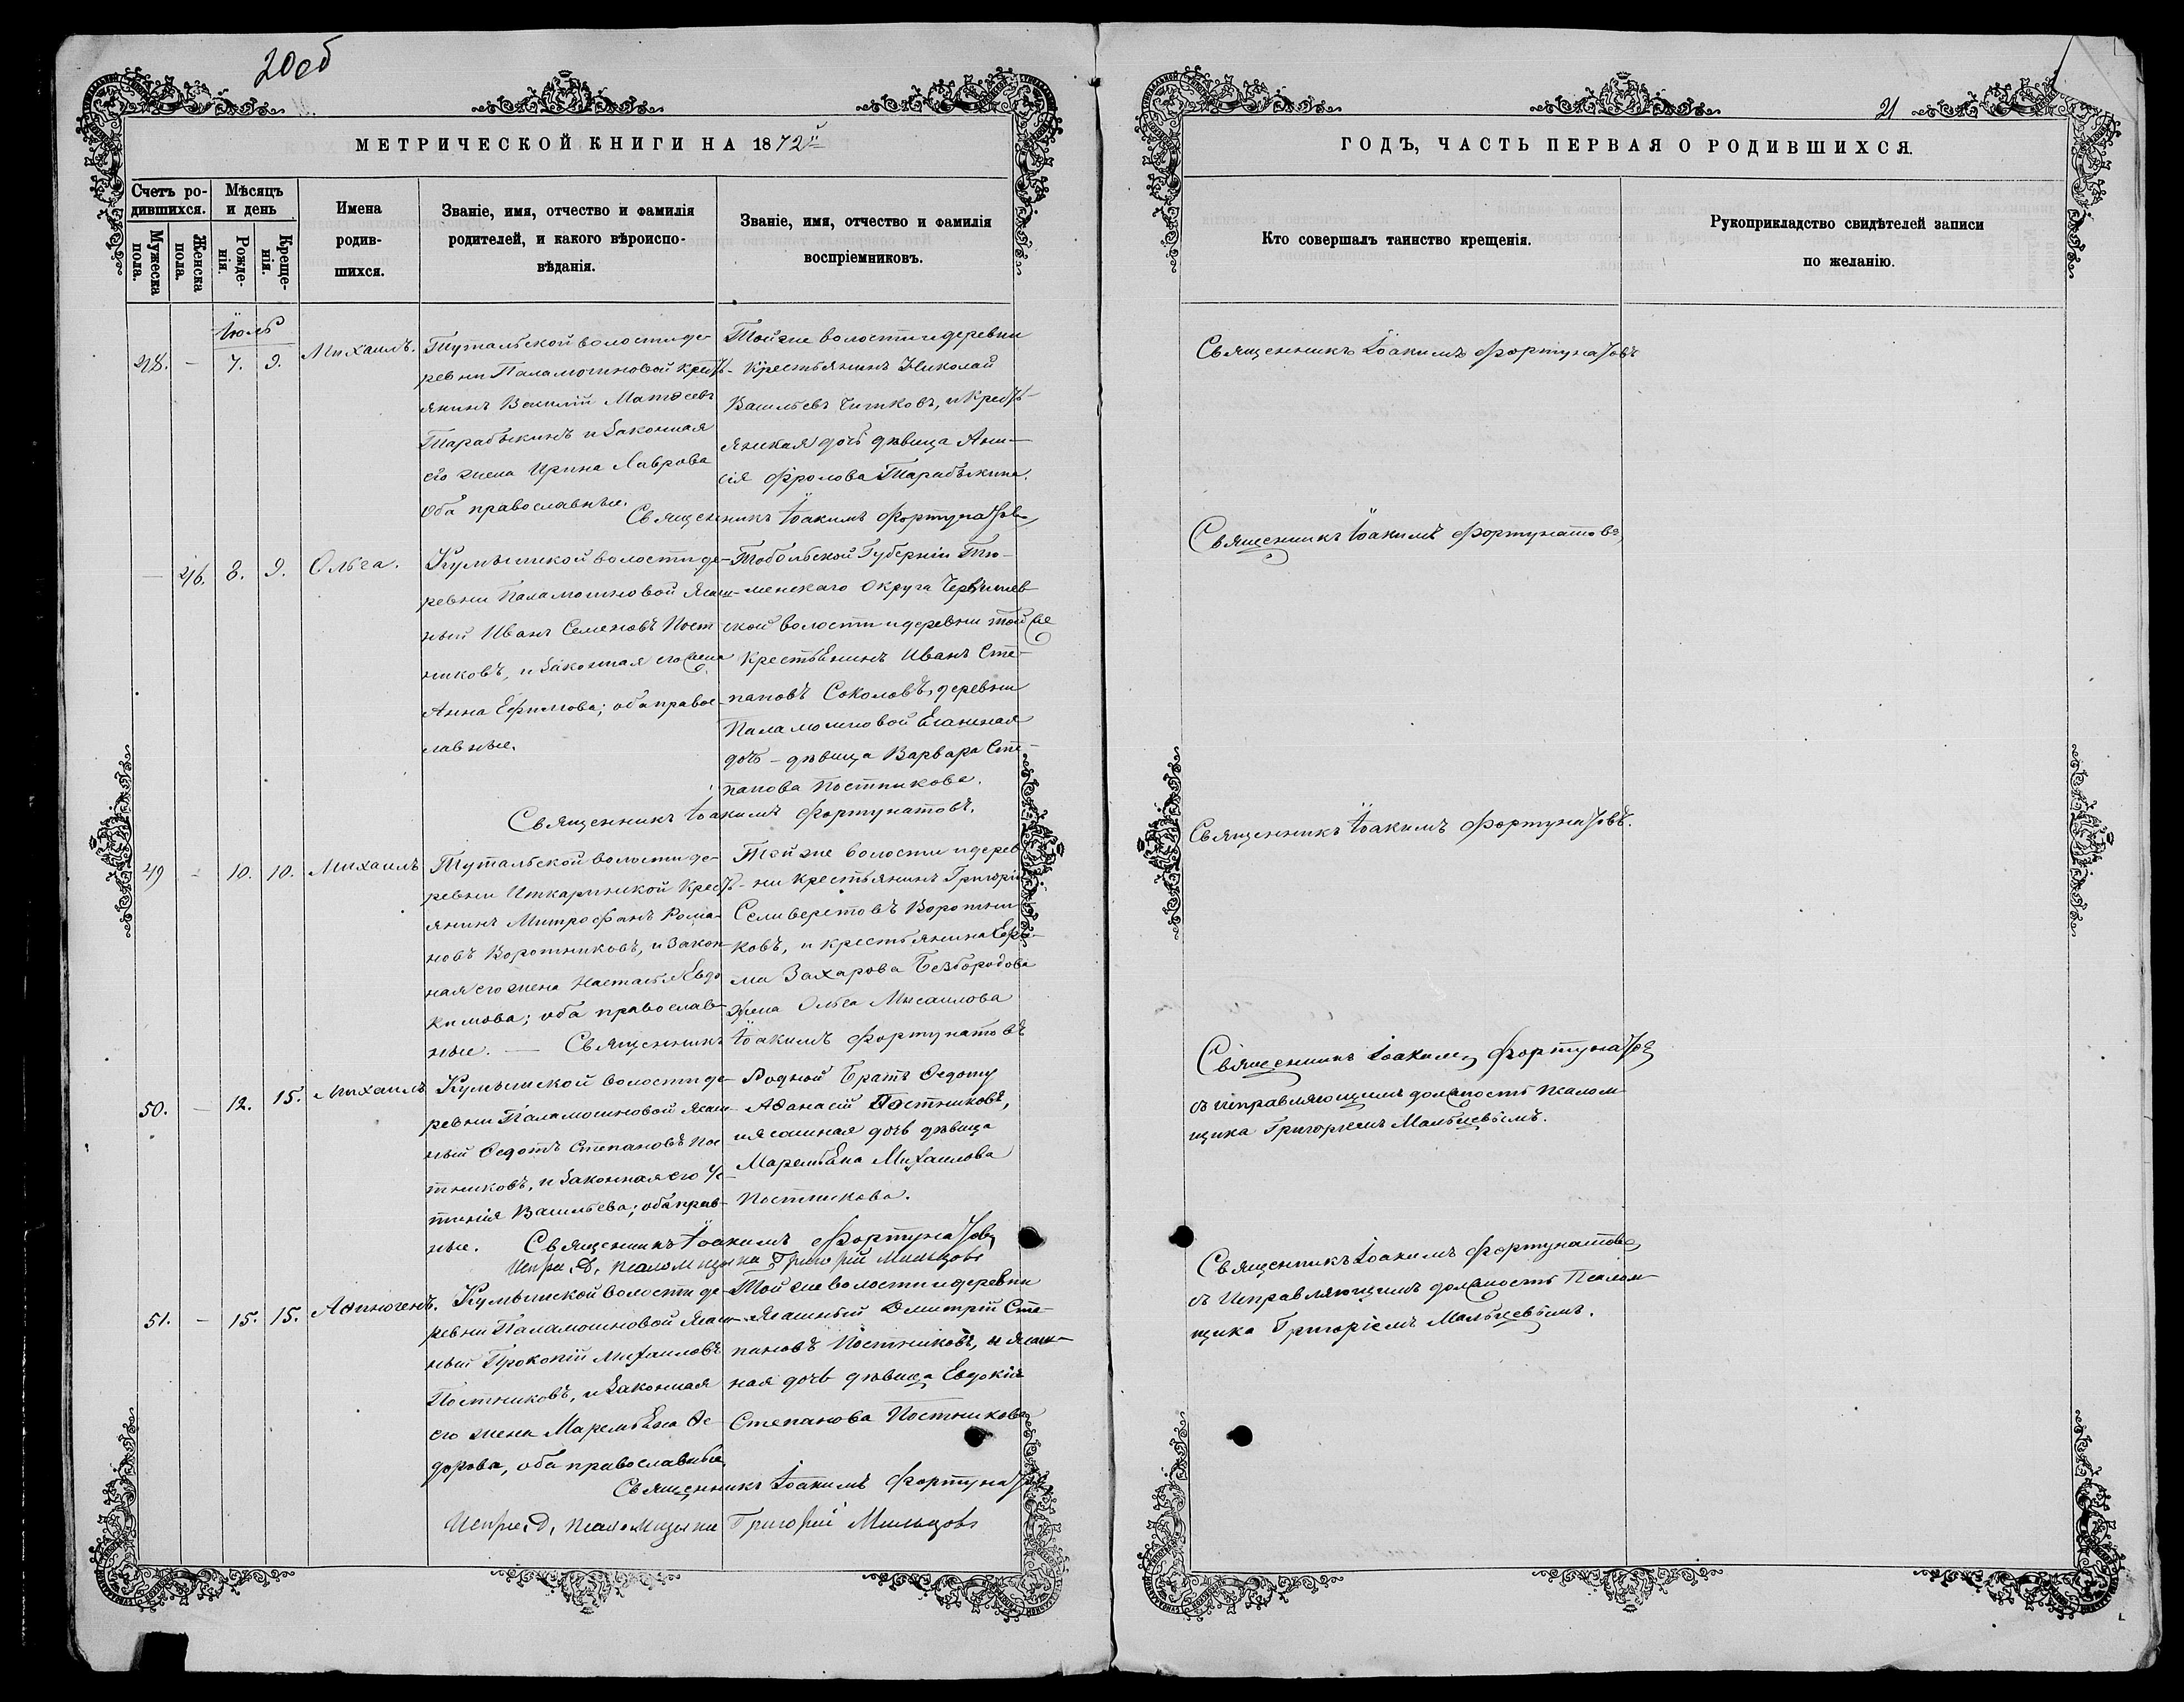 20об
МЕТРИЧЕСКОЙ КНИГИ НА 1872й
Счетъ ро-
дившихся.
Мужеска
пола.
Женска
пола.
Мѣсяцъ
и день
Рожде-
нія.
Креще-
нія.
Имена
родив-
шихся.
Званіе, имя, отчество и фамилія
родителей, и какого вѣроиспо-
вѣданія.
Званіе, имя, отчество и фамилія
воспріемниковъ.
Іюль
48. – 7. 9. Михаилъ.
Тутальской волости де-
ревни Паламошновой крест
янинъ Василій Матѳеевъ
Тарабыкинъ и законная
его жена Ирина Лаврова
оба православные.
Тойже волости и деревни
Крестьянинъ Николай
Васильевъ Чижковъ, и крест-
янская дочь дѣвица Ани-
сія Фролова Тарабыкина.
Священникъ Іоакимъ Фортунатовъ
— 46. 8. 9. Ольга.
Кумышской волости де-
ревни Паламошновой Ясаш-
ный Иванъ Семеновъ Пост
никовъ, и законная его жена
Анна Ефимова; оба правос-
лавные.
Тобольской Губерніи Тю-
менскаго Округа Червишев-
ской волости и деревни той же
Крестьянинъ Иванъ Сте-
пановъ Соколовъ, деревни
Паламошновой Ясашная
дочь – дѣвица Варвара Сте-
панова Постникова.
Священникъ Іоакимъ Фортунатовъ.
49 – 10. 10. Михаилъ
Тутальской волости де-
ревни Иткаринской Крест-
янинъ Митрофанъ Рома-
новъ Воротниковъ, и закон-
ная его жена Настасья Евдо
кимова; оба православ-
ные. —
Тойже волости и дерев
ни крестьянинъ Григорій
Селиверстовъ Воротни
ковъ, и крестьянина Ефи-
ма Захарова Безбородова
жена Ольга Мисаилова
Священникъ Іоакимъ Фортунатовъ
50. – 12. 15. Михаилъ
Кумышской волости де-
ревни Паламошновой Ясаш-
ный Ѳедотъ Степановъ Пос
тниковъ, и законная его Ус-
тинія Васильева; оба прав-
ные.
Родной Братъ Ѳедоту
Аѳанасій Постниковъ,
и ясашная дочь дѣвица
Маремьяна Михаилова
Постникова.
Священникъ Іоакимъ Фортунатовъ
Испр. д. псаломщика Григорій Мальцовъ
51. – 15. 15. Аѳиногенъ.
Кумышской волости де-
ревни Паламошновой Ясаш-
ный Прокопій Михаиловъ
Постниковъ, и законная
его жена Маремьяна Ѳе-
дорова, оба православные
Той же волости и деревни
Ясашный Дмитрій Сте-
пановъ Постниковъ, и ясаш-
ная дочь дѣвица Евдокія
Степанова Постникова
Священникъ Іоакимъ Фортунатовъ
Испр. д. псаломщика Григорій Мальцовъ
21
ГОДЪ, ЧАСТЬ ПЕРВАЯ О РОДИВШИХСЯ.
Кто совершалъ таинство крещенія.
Рукоприкладство свидѣтелей записи
по желанію.
Священникъ Іоакимъ Фортунатовъ
Священникъ Іоакимъ Фортунатовъ,
Священникъ Іоакимъ Фортунатовъ.
Священникъ Іоакимъ Фортунатовъ
съ исправляющимъ должность Псалом
щика Григоріемъ Мальцевымъ.
Священникъ Іоакимъ Фортунатовъ
съ Исправляющимъ должность Псалом-
щика Григоріемъ Мальцевымъ.